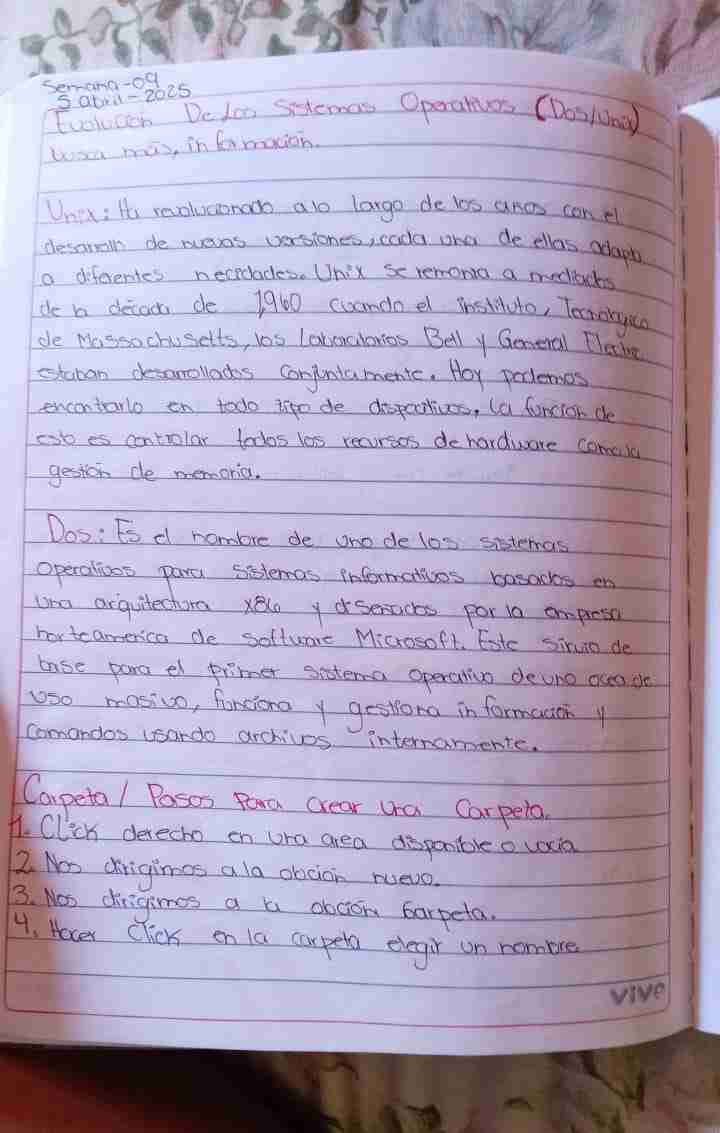 Semana-09
5 abril-2025
Evolucion De Los Sistemas Operativos (Dos/Unix)
busca más, información.
Unix: Ha revolucionado alo largo de los anos con el
desarrollo de nuevas versiones, cada una de ellas adapta
a diferentes necidades. Unix se remonta a mediados
de la década de 1,960 cuando el instituto, Tecnologico
de Massachusetts, los laboratorios Bell y General Electric
estaban desarrollados conjuntamente. Hoy podemos
encontrarlo en todo tipo de dispositivos, la función de
esto es controlar todos los recursos de hardware como la
gestión de memoria.
Dos: Es el nombre de uno de los sistemas
operativos para sistemas informativos basados en
una arquitectura x86 y diseñados por la empresa
norteamerica de software Microsoft. Este sirvio de
base para el primer sistema operativo de uno ocea de
uso masivo, funciona y gestiona información y
comandos usando archivos internamente.
Carpeta / Pasos Para Crear Una Carpeta.
1. Click derecho en una area disponible o vacia
2. Nos dirigimos a la obción nuevo.
3. Nos dirigimos a la obción Carpeta.
4. Hacer Click en la carpeta elegir un nombre
vive